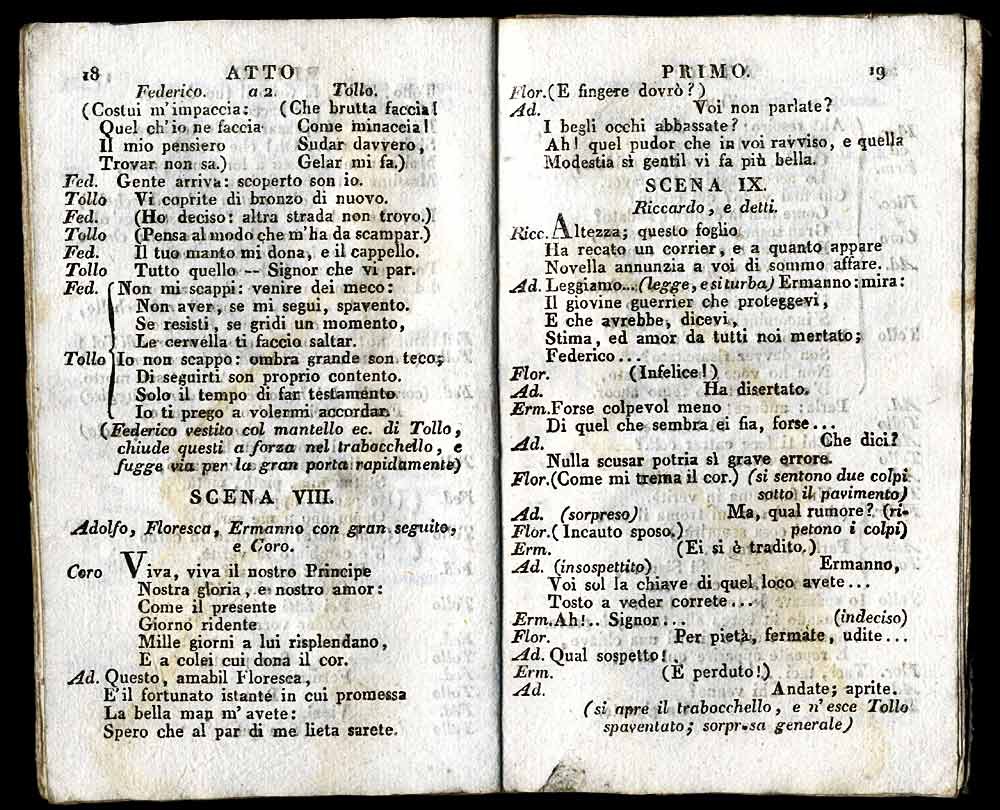 18 ATTO
Federico. a 2. Tollo.
(Costui m'impaccia: (Che brutta faccia!
Quel ch'io ne faccia Come minaccia!
Il mio pensiero Sudar davvero,
Trovar non sa.) Gelar mi fa.)
Fed. Gente arriva: scoperto son io.
Tollo Vi coprite di bronzo di nuovo.
Fed. (Ho deciso: altra strada non trovo.)
Tollo (Pensa al modo che m'ha da scampar.)
Fed. Il tuo manto mi dona, e il cappello.
Tollo Tutto quello -- Signor che vi par.
Fed. Non mi scappi: venire dei meco:
Non aver, se mi segui, spavento.
Se resisti, se gridi un momento,
Le cervella ti faccio saltar.
Tollo Io non scappo: ombra grande son teco;
Di seguirti son proprio contento.
Solo il tempo di far testamento
Io ti prego a volermi accordar.
(Federico vestito col mantello ec. di Tollo,
chiude questi a forza nel trabocchello, e
fugge via per la gran porta rapidamente)
SCENA VIII.
Adolfo, Floresca, Ermanno con gran seguito,
e Coro.
Coro Viva, viva il nostro Principe
Nostra gloria, e nostro amor:
Come il presente
Giorno ridente
Mille giorni a lui risplendano,
E a colei cui dona il cor.
Ad. Questo, amabil Floresca,
E'il fortunato istante in cui promessa
La bella man m'avete:
Spero che al par di me lieta sarete.
PRIMO. 19
Flor.(E fingere dovrò?)
Ad. Voi non parlate?
I begli occhi abbassate?
Ah! quel pudor che in voi ravviso, e quella
Modestia sì gentil vi fa più bella.
SCENA IX.
Riccardo, e detti.
Ricc. Altezza; questo foglio
Ha recato un corrier, e a quanto appare
Novella annunzia a voi di sommo affare.
Ad. Leggiamo...(legge, e si turba) Ermanno: mira:
Il giovine guerrier che proteggevi,
E che avrebbe, dicevi,
Stima, ed amor da tutti noi mertato;
Federico...
Flor. (Infelice!)
Ad. Ha disertato.
Erm.Forse colpevol meno
Di quel che sembra ei fia, forse...
Ad. Che dici?
Nulla scusar potria sì grave errore.
Flor.(Come mi trema il cor.) (si sentono due colpi
sotto il pavimento)
Ad. (sorpreso) Ma, qual rumore? (ri-
Flor.(Incauto sposo.) petono i colpi)
Erm. (Ei si è tradito.)
Ad. (insospettito) Ermanno,
Voi sol la chiave di quel loco avete...
Tosto a veder correte...
Erm.Ah!.. Signor... (indeciso)
Flor. Per pietà, fermate, udite...
Ad. Qual sospetto!
Erm. (È perduto!)
Ad. Andate; aprite.
(si apre il trabocchello, e n'esce Tollo
spaventato; sorpresa generale)